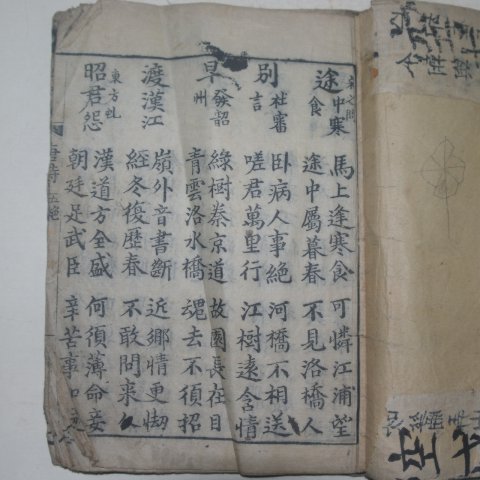 宋之問
途中寒食
馬上逢寒食
途中屬暮春
可憐江浦望
不見洛橋人
別 杜審言
臥病人事絶
嗟君萬里行
河橋不相送
江樹遠含情
早發韶州
綠樹秦京道
青雲洛水橋
故園長在目
魂去不須招
渡漢江
嶺外音書斷
經冬復歷春
近鄉情更㤼
不敢問來人
昭君怨 東方虬
漢道方全盛
朝廷足武臣
何須薄命妾
辛苦事
唐詩 五絶